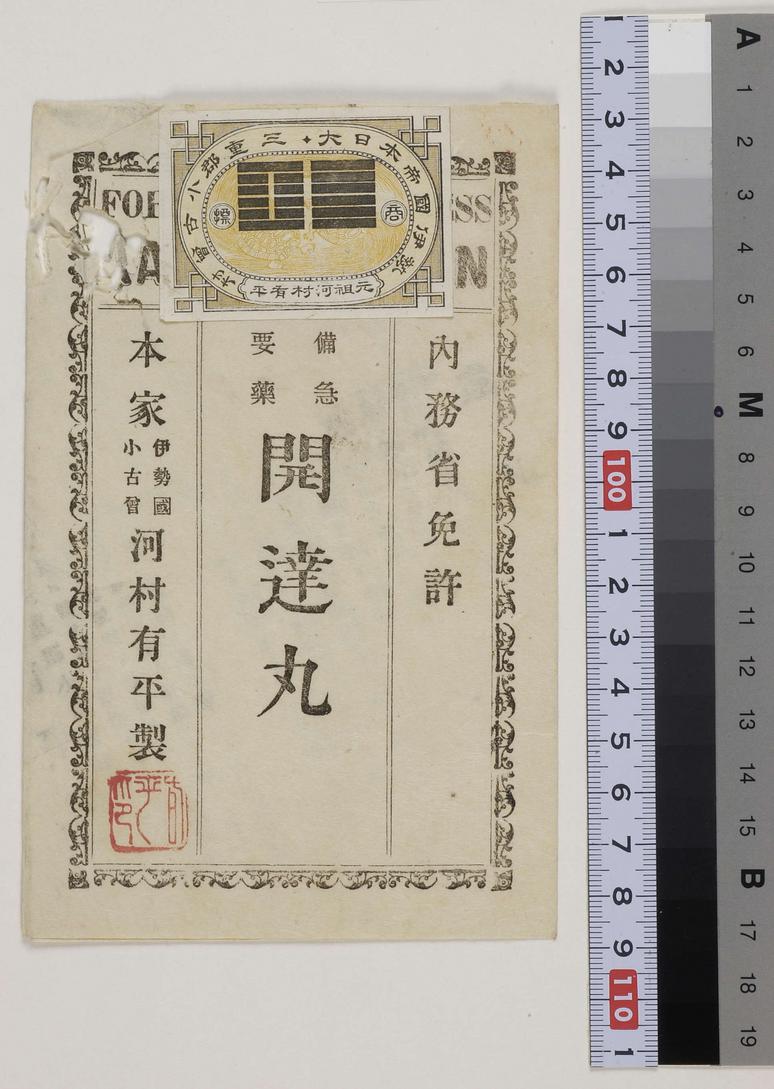 大日本帝國伊勢
三重郡小古曾村
商
標
元祖河村有平
FOR
SS
AA
N
內務省免許
備急
要藥
開達丸
本家
伊勢國
小古曾
河村有平製
1
2
3
4
5
6
7
8
9
100
1
2
3
4
5
6
7
8
9
110
1
A
1
2
3
4
5
6
M
8
9
10
11
12
13
14
15
B
17
18
19